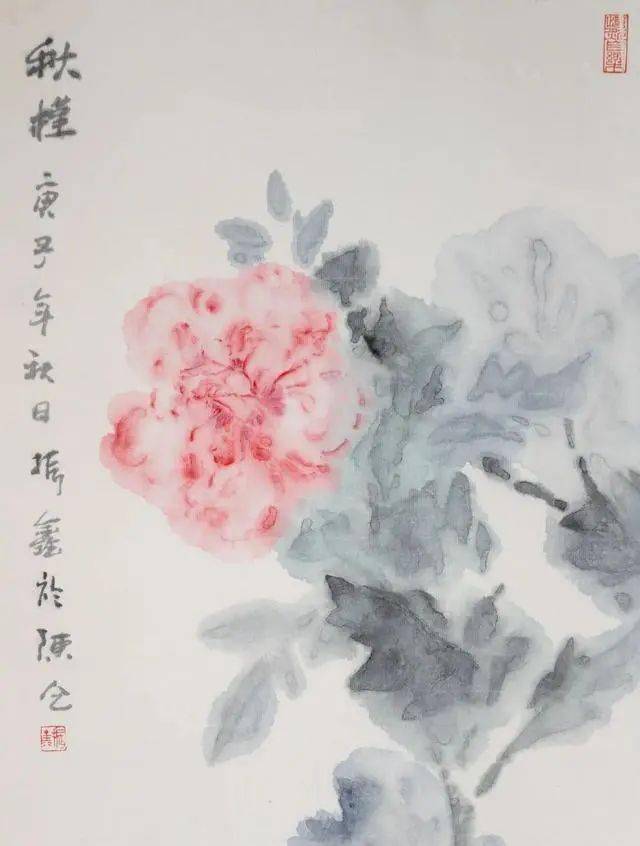 秋槿 庚子年秋日振鑫於陳仓